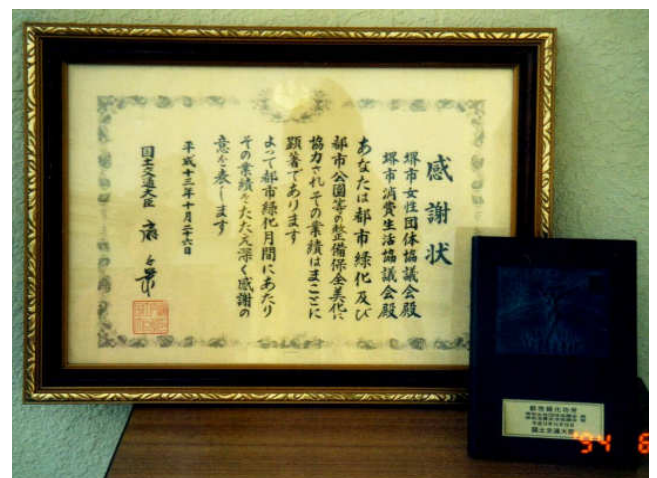 感謝状
堺市女性団体協議会殿
堺市消費生活協議会殿
あなたは都市緑化及び
都市公園等の整備保全美化に
協力されその業績はまことに
顕著であります
よって都市緑化月間にあたり
その業績をたたえ深く感謝の
意を表します
平成十三年十月二十六日
国土交通大臣
都市緑化功労
国土交通大臣
'94 6